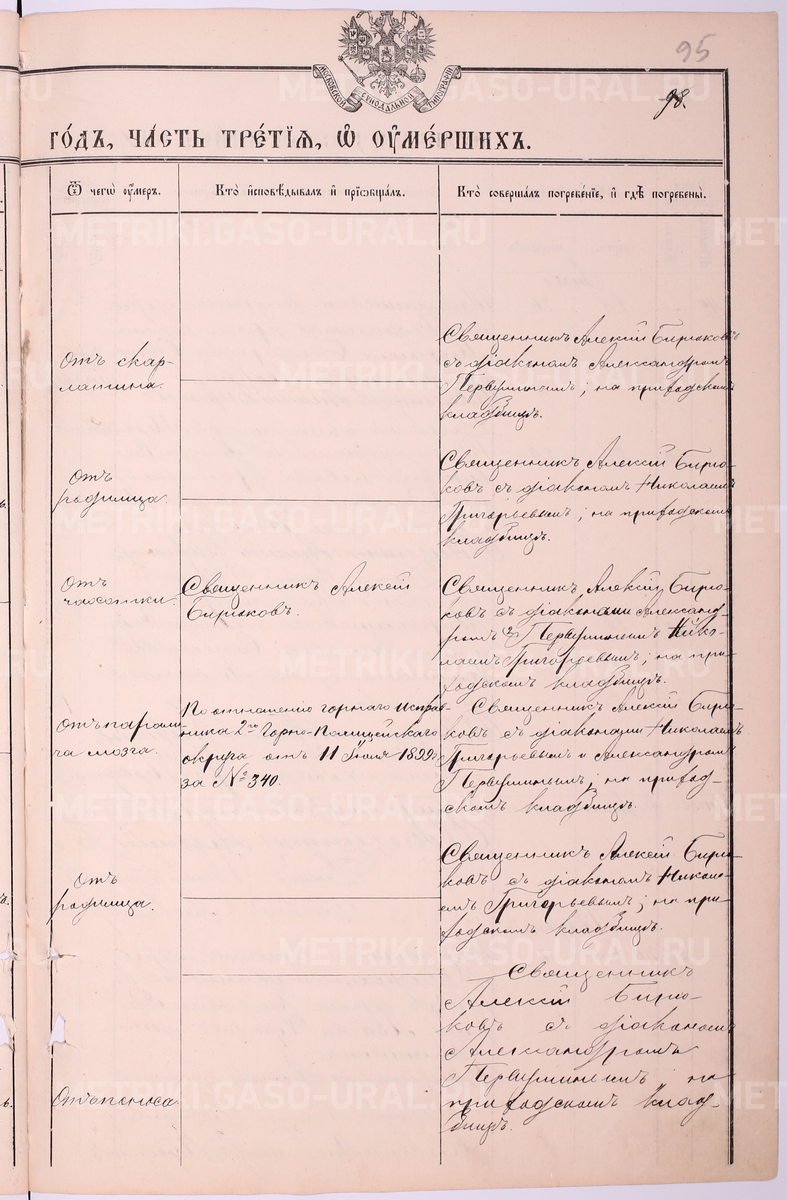 95
98.
МОСКОВСКОЙ СѴНОДАЛЬНОЙ ТИПОГРАФІИ
го́дъ, ча́сть тре́тїѧ, ѡ҆ ᲂу҆ме́ршихъ.
Ѿ чегѡ̀ ᲂу҆́мер.
Кто̀ и҆сповѣ́дывалъ и҆ прїѡбща́лъ.
Кто̀ соверша́лъ погребе́нїе, и҆ гдѣ̀ погребены̀.
Отъ скар-
латина.
Священникъ Алексій Бирюковъ
съ діакономъ Александромъ
Первушинымъ; на приходскомъ
кладбищѣ.
Отъ
родимца.
Священникъ Алексій Бирю-
ковъ съ діакономъ Николаемъ
Григорьевымъ; на приходскомъ
кладбищѣ.
Отъ
чахотки.
Священникъ Алексій
Бирюковъ.
Священникъ Алексій Бирю-
ковъ съ діаконами Александ-
ромъ Первушинымъ Нико-
лаемъ Григорьевымъ; на при-
ходскомъ кладбищѣ.
Отъ парали-
ча мозга.
По отношенію горнаго исправ-
ника 2го Горно-Полицейскаго
округа отъ 11 Іюля 1899 г.
за № 340.
Священникъ Алексій Бирю-
ковъ съ діаконами Николаемъ
Григорьевымъ и Александромъ
Первушинымъ; на приход-
скомъ кладбищѣ.
Отъ
родимца.
Священникъ Алексій Бирю-
ковъ съ діакономъ Никола-
емъ Григорьевымъ; на при-
ходскомъ кладбищѣ.
Отъ поноса
Священникъ
Алексій Бирю-
ковъ съ діакономъ
Александромъ
Первушинымъ на
приходскомъ клад-
бищѣ.
METRIKI.GASO-URAL.RU